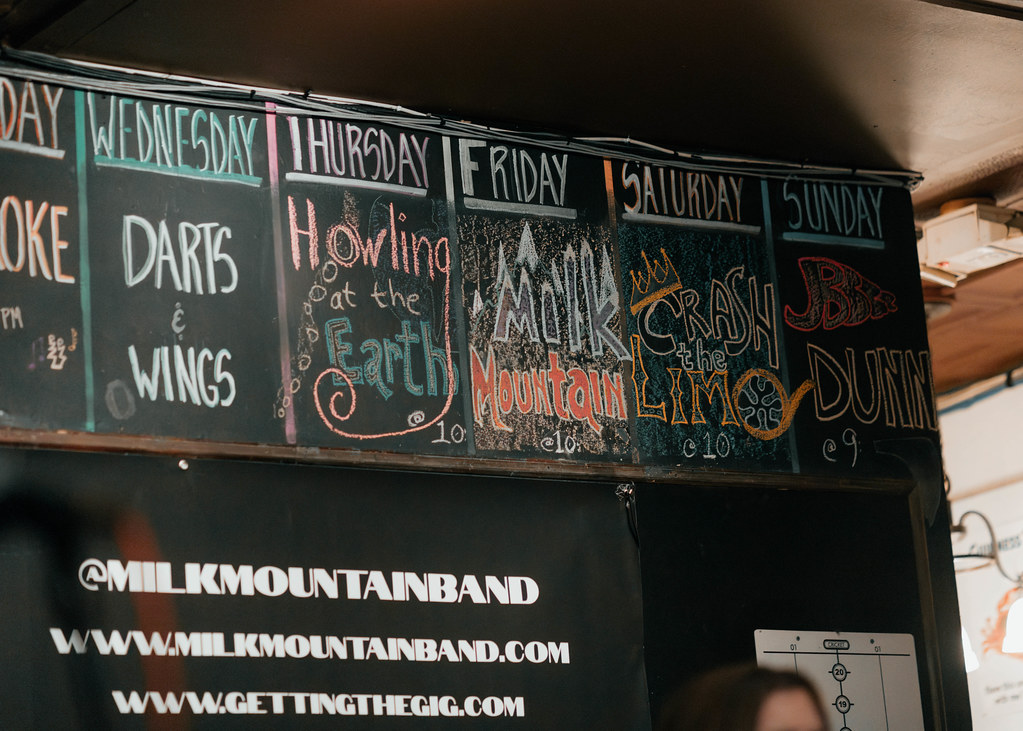 DAY
OKE
PM
WEDNESDAY
DARTS
&
WINGS
THURSDAY
Howling
at the
Earth
@ 10
FRIDAY
Milk
Mountain
@ 10
SATURDAY
CRASH
the
LIMO
@ 10
SUNDAY
DUNN
@ 9
@MILKMOUNTAINBAND
WWW.MILKMOUNTAINBAND.COM
WWW.GETTINGTHEGIG.COM
01
CRICKET
01
20
19